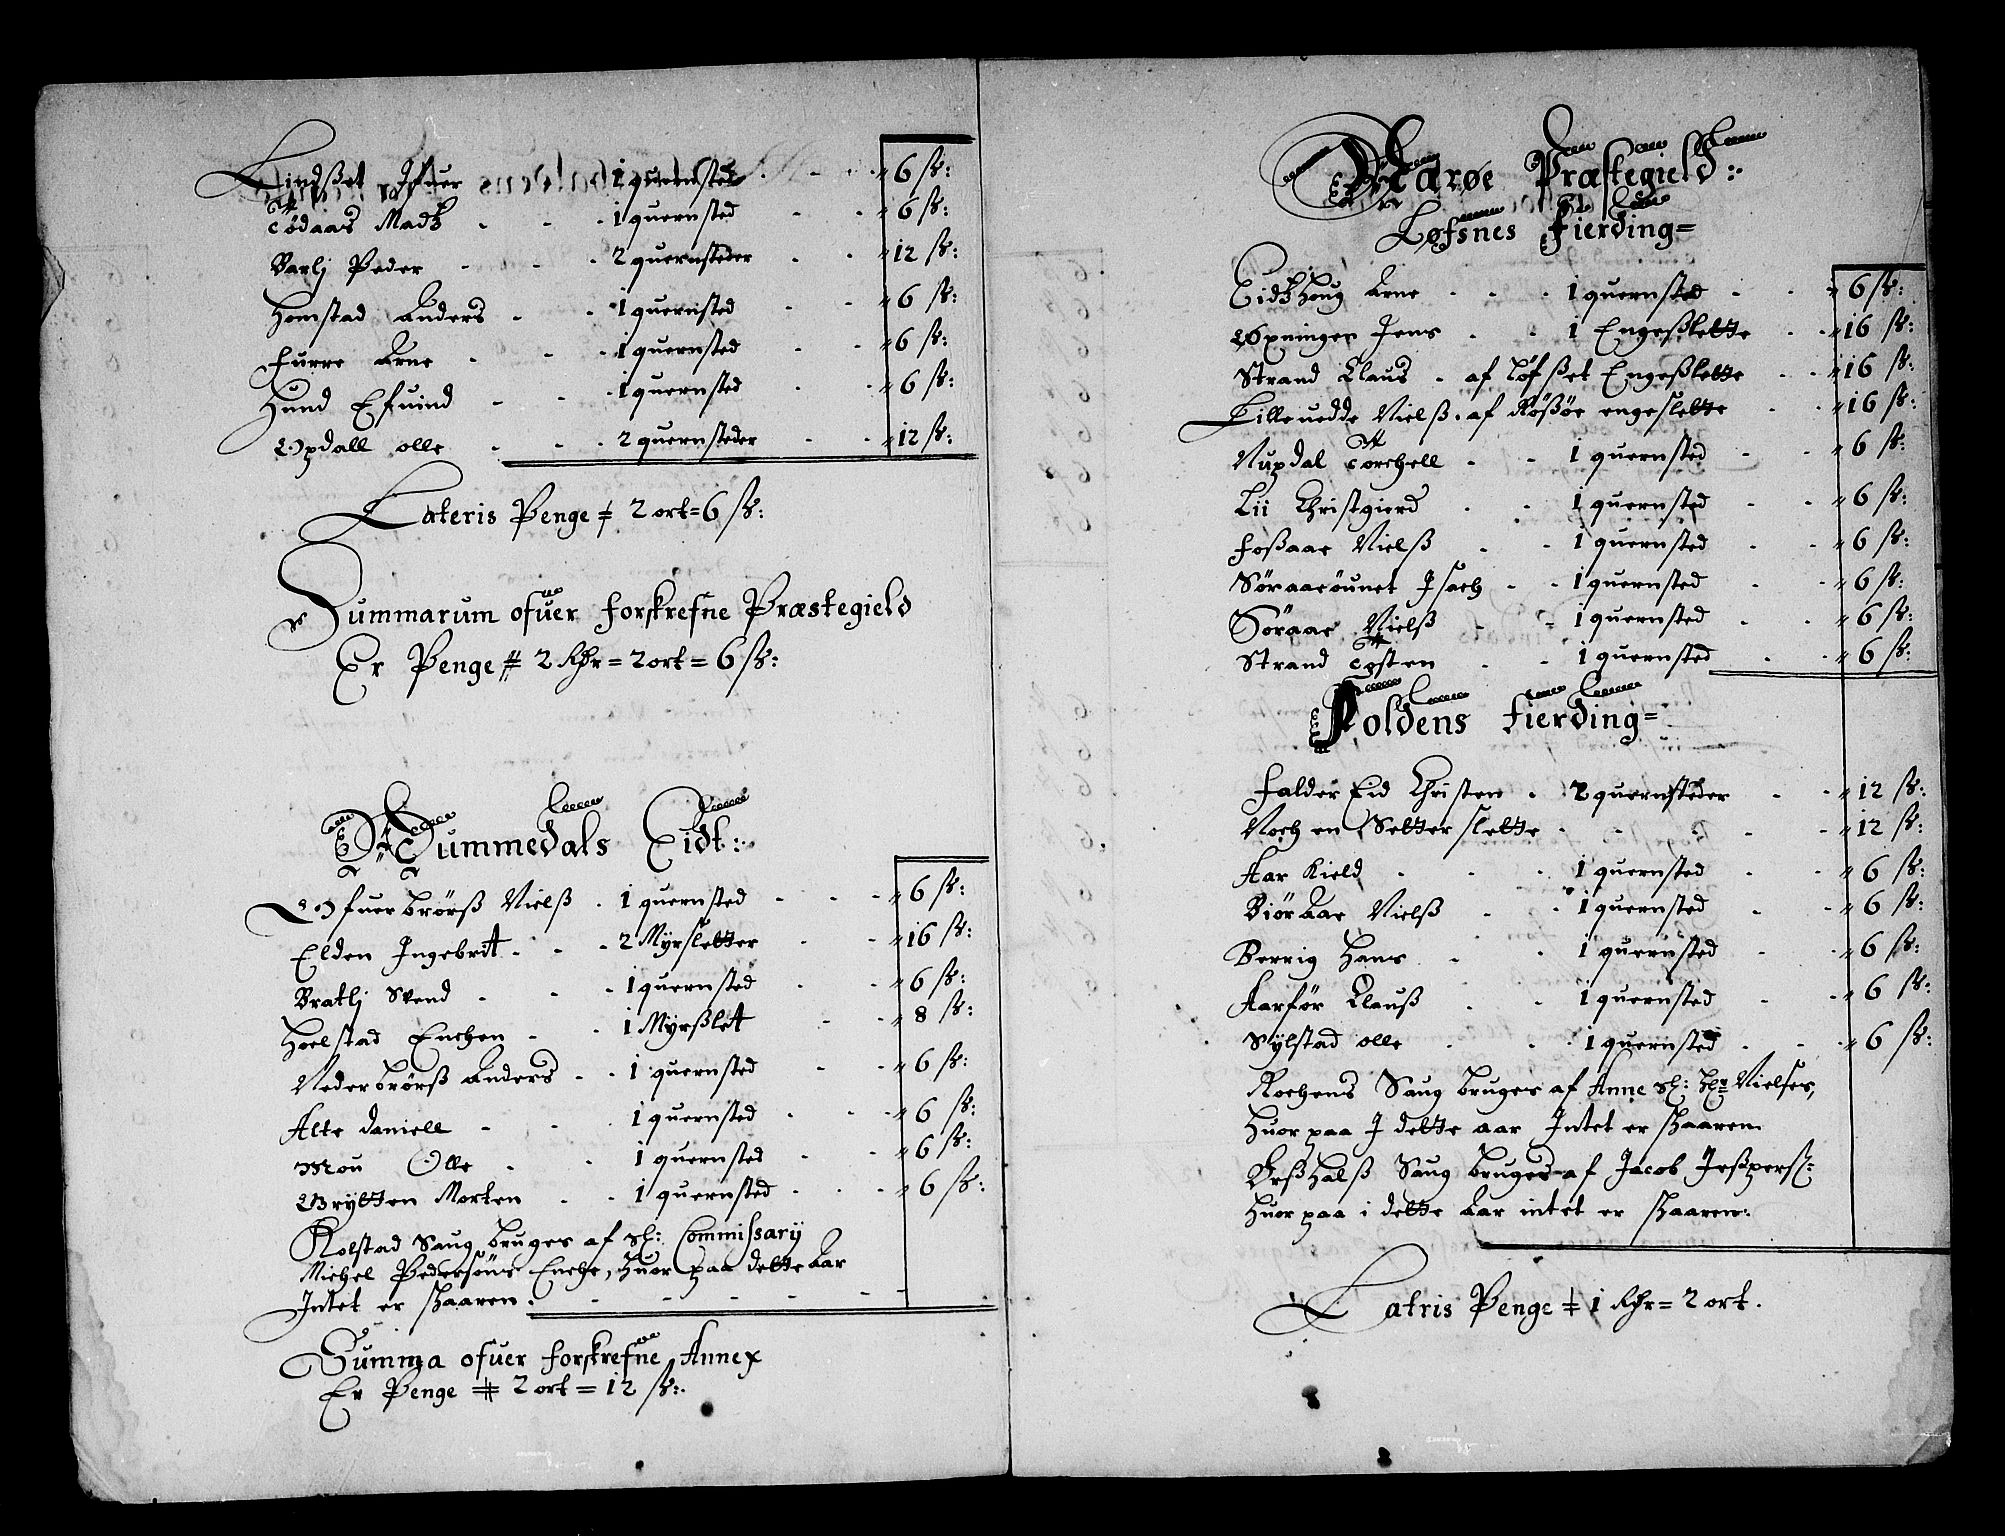 Lindßet Ifuer - 1 quernsted - - „ 6 sk:
Tødaas Madtz - - - 1 quernsted - - „ 6 sk:
Barlj Peder - - - 2 quernsteder - - „ 12 sk:
Homstad Anders - - 1 quernsted - - „ 6 sk:
Furre Arne - - - 1 quernsted - - „ 6 sk:
Hund Efuind - - - 1 quernsted - - „ 6 sk:
Opdall olle - - - 2 quernsteder - - „ 12 sk:
Lateris Penge ǂ 2 ort = 6 sk:
Summarum ofuer forskrefne Præstegield
Er Penge ǂ 2 Rdr = 2 ort = 6 sk:
Nummedals Eidt:
Ofuer brörß Nielß - 1 quernsted - - - „ 6 sk:
Elden Ingebrit - - - 2 Myrsletter - - „ 16 sk:
Bratlj Svend - - - 1 quernsted - - „ 6 sk:
Hoelstad Enchen - - 1 Myrßlet - - „ 8 sk:
Neder brörß Anders - - 1 quernsted - - „ 6 sk:
Alte Daniell - - - 1 quernsted - - - „ 6 sk:
Mou Olle - - 1 quernsted - - - „ 6 sk:
Brytten Morten - - 1 quernsted - - - „ 6 sk:
Kolstad Saug bruges af Sl: Commissary
Michel Pedersöns Enche, huor paa dette Aar
Intet er skaaren. - - - - - -
Summa ofuer forskrefne Annex
Er Penge ǂ 2 ort = 12 sk:
Nærøe Præstegield:
Løfsnes Fierding=
Eidtzhoug Arne - - - 1 quernsted - - „ 6 sk:
Opninger Jens - - 1 Engeßlette - - „ 16 sk:
Strand Claus - af Löfßet Engeßlette - - „ 16 sk:
Lilleuedde Nielß. af Rößöe engeslette - - „ 16 sk:
Nupdal Torchell - - 1 quernsted - - „ 6 sk:
Lii Christgierd - - 1 quernsted - - „ 6 sk:
Foßaae Nielß - - 1 quernsted - - „ 6 sk:
Söraaeöunet Isach - - 1 quernsted - - „ 6 sk:
Söraae Nielß - - 1 quernsted - - „ 6 sk:
Strand Tosten - - 1 quernsted - - „ 6 sk:
Foldens Fierding=
Falder Eid Christen - 2 quernsteder - - „ 12 sk:
Noch en Setter slette - - - - „ 12 sk:
Aar Kield - - - 1 quernsted - - „ 6 sk:
Biöraae Nielß - - 1 quernsted - - „ 6 sk:
Berrig Hans - - 1 quernsted - - „ 6 sk:
Aarför Clauß - - 1 quernsted - - „ 6 sk:
Sylstad olle - - 1 quernsted - - „ 6 sk:
Kochens Saug bruges af Anne Sl: Hr: Nielses,
Huor paa I dette aar Intet er skaaren
Orßhalß Saug bruges af Jacob Jeßpersß:
Huor paa i dette Aar intet er skaaren:
Latris Penge ǂ 1 Rdr = 2 ort.